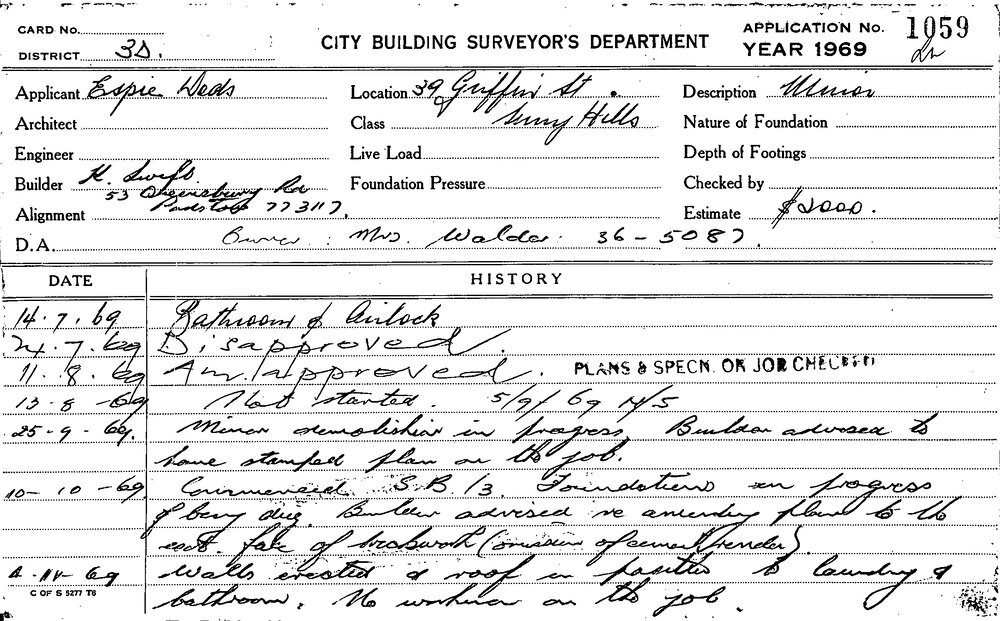 CARD No.
DISTRICT 3D.
CITY BUILDING SURVEYOR'S DEPARTMENT
APPLICATION No. 1059
YEAR 1969
Applicant Espie Dods
Location 39 Griffin St.
Description Minor
Architect
Class Surry Hills
Nature of Foundation
Engineer
Live Load
Depth of Footings
Builder K. Swift.
53 Queensbury Rd
Foundation Pressure
Checked by
Alignment Padstow 773117.
Estimate $2000.
D.A. Owner: Mrs. Walder. 36-5087.
DATE
HISTORY
14.7.69 Bathroom & Airlock
24.7.69 Disapproved.
11.8.69 Am. approved. PLANS & SPECN. ON JOB CHECKED
13-8-69 Not started. 5/9/69 N/S
25-9-69. Minor demolition in progress. Builder advised to
have stamped plan on the job.
10-10-69 Commenced S.B.13. Foundations in progress
of being dug. Builder advised re amending plans to the
ext. face of brickwork (omission of cement render).
11-69 Walls erected & roof in position to laundry &
bathroom. No workmen on the job.
C OF S 5277 T6